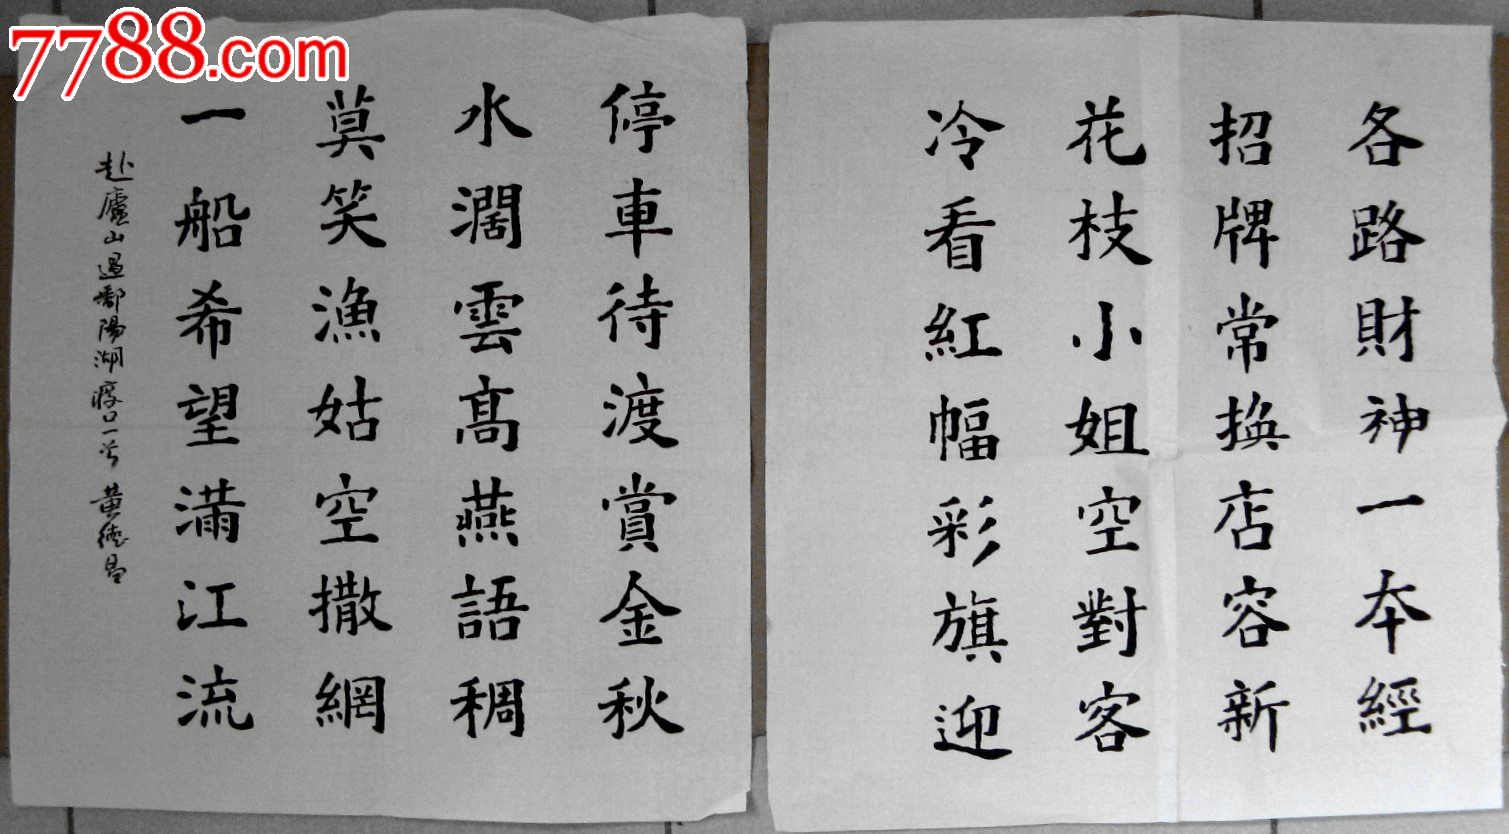 7788.com
各路財神一本經
招牌常換店容新
花枝小姐空對客
冷看紅幅彩旗迎
停車待渡賞金秋
水濶雲髙燕語稠
莫笑漁姑空撒網
一船希望滿江流
赴廬山過鄱陽湖渡口一首 黄德昌